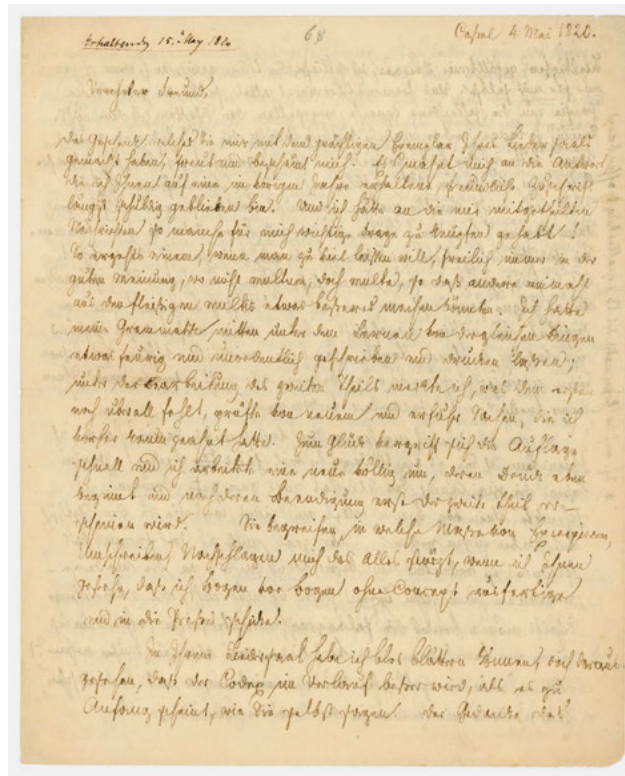 Erhaltend. 15. May 1820
68
Cassel 4 Mai 1820.
Verehrter Freund,
das Geschenk welches Sie mir mit dem prächtigen Exemplar Ihres Lieder Saals
gemacht haben, freut und beschämt mich. Es mahnt mich an die Antwort
die ich Ihnen auf eine im vorigen Jahre erhaltene freundliche Zuschrift
längst schuldig geblieben bin. Und ich hätte an die mir mitgetheilten
Nachrichten so manche für mich wichtige Frage zu knüpfen gehabt!
So ergehts einem, wenn man zu viel leisten will, freilich immer in der
guten Meinung, wo nicht multum, doch multa, so daß andere einmahl
aus den fleißigen multis etwas besseres machen könnten. Ich hatte
meine Grammatik mitten unter dem Lernen von dergleichen Dingen
etwas feurig und unordentlich geschrieben und drucken lassen;
unter der Bearbeitung des zweiten Theils merkte ich, was dem ersten
noch überall fehlt, prüfte von neuem und erfuhr Sachen, die ich
vorher kaum geahnt hatte. Zum Glück vergriff sich die Auflage
schnell und ich arbeitete eine neue völlig um, deren Druck eben
beginnt und nach deren Beendigung erst der zweite Theil er-
scheinen wird. Sie begreifen, in welche Masse von Excerpieren,
Umschreiben, Nachschlagen mich das alles stürzt, wenn ich Ihnen
gestehe, daß ich Bogen vor Bogen ohne Concept ausfertige
und in die Presse schicke.
In Ihrem Liedersaal habe ich blos blättern können, doch daraus
gesehen, daß der Codex im Verlauf besser wird, als es zu
Anfang scheint, wie Sie selbst sagen. Der Gedanke des